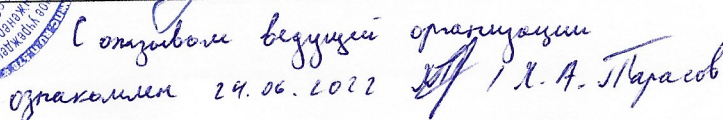 С отзывом ведущей организации
ознакомлен 24.06.2022 / Х. А. Тарасов